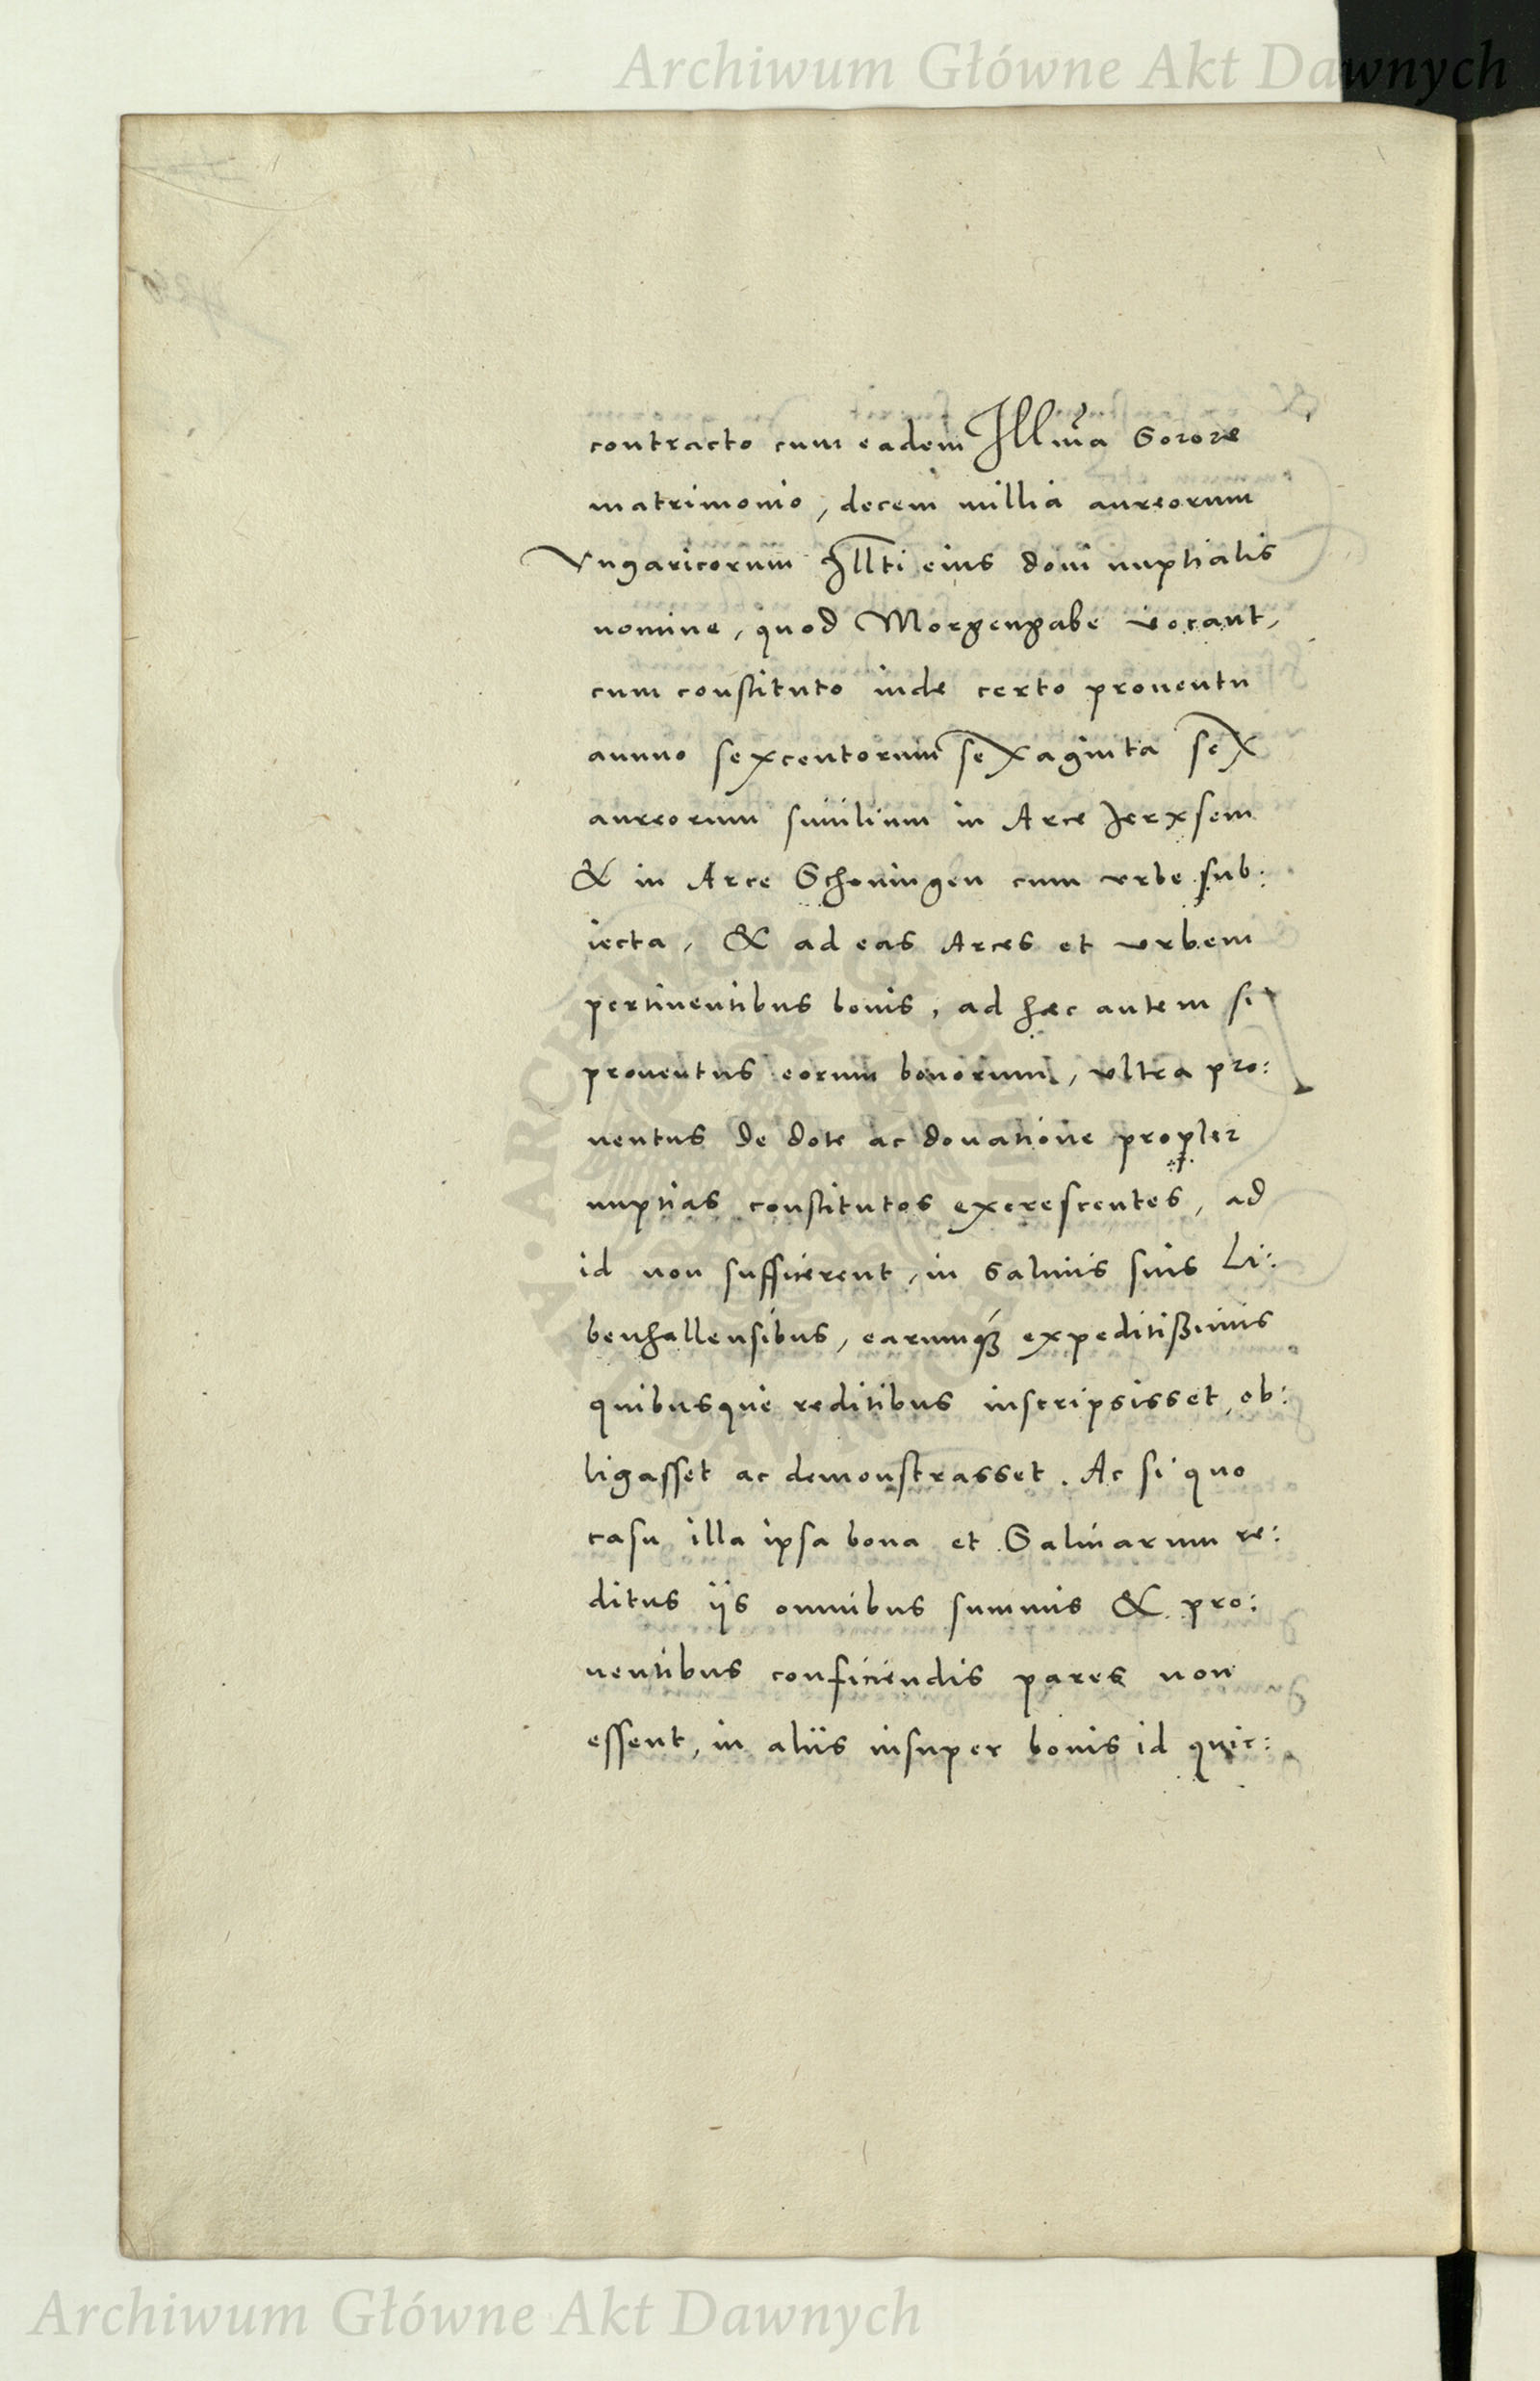 Archiwum Główne Akt Dawnych
contracto cum eadem Illma Sorore
matrimonio, decem millia aureorum
Vngaricorum Illti eius doni nuptialis
nomine, quod Morgengabe vocant,
cum constituto inde certo prouentu
annuo sexcentorum sexaginta sex
aureorum similium in Arce Jerxsem
& in Arce Schoningen cum vrbe sub:
iecta, & ad eas Arces et vrbem
pertinentibus bonis, ad hæc autem si
prouentus eorum bonorum, vltra pro:
uentus de dote ac donatione propter
nuptias constitutos excrescentes, ad
id non sufficerent, in salinis suis Li:
benhallensibus, earumq́ue expeditißimis
quibusque reditibus inscripsisset, ob:
ligasset ac demonstrasset. Ac si quo
casu illa ipsa bona et Salinarum re:
ditus ijs omnibus summis & pro:
uentibus conficiendis pares non
essent, in aliis insuper bonis id quic:
Archiwum Główne Akt Dawnych